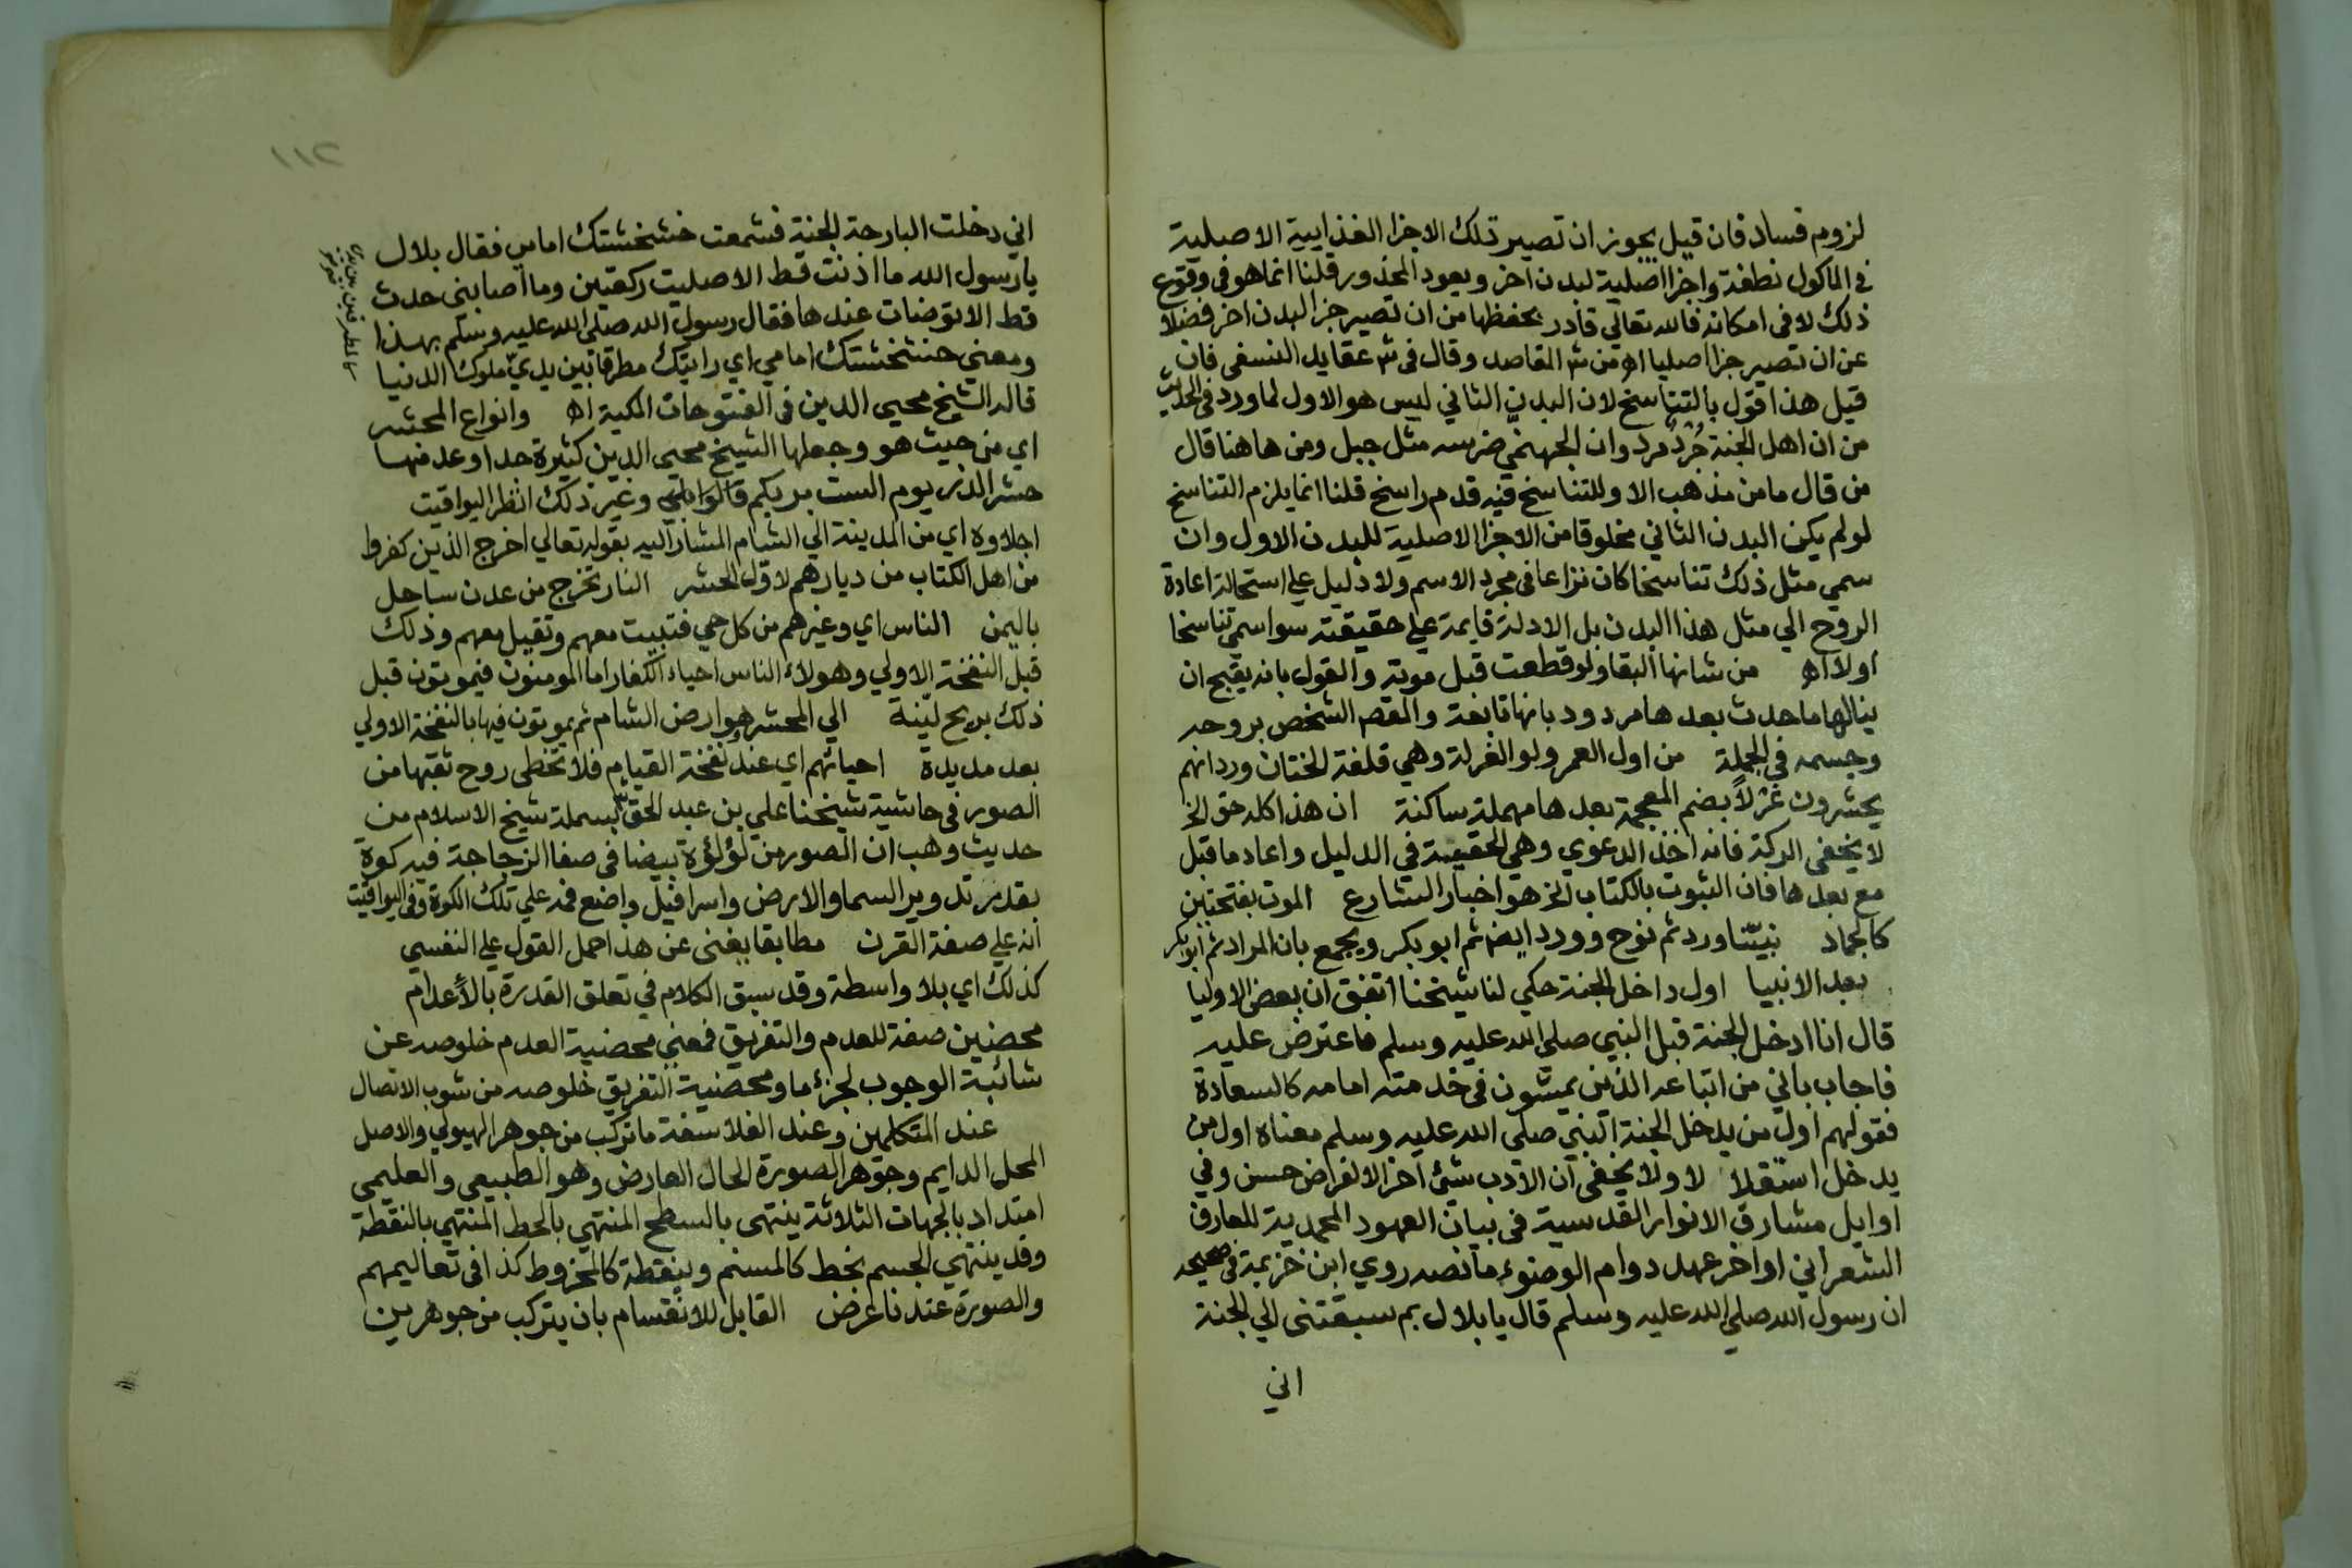 لزوم فساد فان قيل يجوز ان تصير تلك الاجزا الغذايية الاصلية
في الماكول نطفة واجزا اصلية لبدن اخر ويعود المحذور قلنا انما هو في وقوع
ذلك لا في امكانه فالله تعالي قادر بحفظها من ان تصير جزا لبدن اخر فضلا
عن ان تصير جزا اصليا اه من ش المقاصد وقال في ش عقايد النسفي فان
قيل هذا قول بالتناسخ لان البدن الثاني ليس هو الاول لما ورد في الحديث
من ان اهل الجنة جُرْدٌ مرد وان الجهنمي ضرسه مثل جبل ومن هاهنا قال
من قال ما من مذهب الا وللتناسخ فيه قدم راسخ قلنا انما يلزم التناسخ
لو لم يكن البدن الثاني مخلوقا من الاجزا الاصلية للبدن الاول وان
سمي مثل ذلك تناسخا كان نزاعا في مجرد الاسم ولا دليل علي استحالة اعادة
الروح الي مثل هذا البدن بل الادلة قايمة علي حقيقته سوا سمي تناسخا
اولا اه من شانها البقا ولو قطعت قبل موته والقول بانه يقبح ان
ينالها ما حدث بعدها مردود بانها تابعة والمقص الشخص بروحه
وجسمه في الجملة من اول العمر ولو الغرلة وهي قلفة الختان ورد انهم
يحشرون غُرْلاً بضم المعجمة بعدها مهملة ساكنة ان هذا كله حق الخ
لا يخفي الركة فانه اخذ الدعوي وهي الحقيقة في الدليل واعاد ما قبل
مع بعدها فان الثبوت بالكتاب الخ هو اخبار الشارع الموت بفتحتين
كالجماد نبيّنا ورد ثم نوح وورد ايضا ثم ابو بكر ويجمع بان المراد ثم ابو بكر
بعد الانبيا اول داخل الجنة حكي لنا شيخنا اتفق ان بعض الاوليا
قال انا ادخل الجنة قبل النبي صلي الله عليه وسلم فاعترض عليه
فاجاب باني من اتباعه الذين يمشون في خدمته امامه كالسعادة
فقولهم اول من يدخل الجنة النبي صلي الله عليه وسلم معناه اول من
يدخل استقلالا ولا يخفي ان الادب شئ اخر الا لغرض حسن وفي
اوايل مشارق الانوار القدسية في بيان العهود المحمدية للعارف
الشعراني اواخر عهد دوام الوضوء ما نصه روي ابن خزيمة في صحيحه
ان رسول الله صلي الله عليه وسلم قال يا بلال بم سبقتني الي الجنة
اني
١١٢
اني دخلت البارحة الجنة فسمعت خشخشتك امامي فقال بلال
يا رسول الله ما اذنت قط الا صليت ركعتين وما اصابني حدث
قط الا توضات عندها فقال رسول الله صلي الله عليه وسلم بهذا
ومعني خشخشتك امامي اي رايتك مطرقا بين يديّ ملوك الدنيا
قاله الشيخ محيي الدين في الفتوحات المكية اه وانواع المحشر
اي من حيث هو وجعلها الشيخ محيي الدين كثيرة جدا وعد منها
حشر الذر يوم الست بربكم قالوا بلي وغير ذلك انظر اليواقيت
اجلاوه اي من المدينة الي الشام المشار اليه بقوله تعالي اخرج الذين كفروا
من اهل الكتاب من ديارهم لاول الحشر النار تخرج من عدن ساحل
باليمن الناس اي وغيرهم من كل حي فتبيت معهم وتقيل معهم وذلك
قبل النفخة الاولي وهولاء الناس احياء الكفار اما المومنون فيموتون قبل
ذلك بريح لينة الي المحشر هو ارض الشام ثم يموتون فيها بالنفخة الاولي
بعد مديدة احيائهم اي عند نفخة القيام فلا تخطي روح ثقبها من
الصور في حاشية شيخنا علي بن عبد الحق لبسملة شيخ الاسلام من
حديث وهب ان الصور من لؤلؤة بيضا في صفا الزجاجة فيه كوة
بقدر تدوير السما والارض واسرافيل واضع فمه علي تلك الكوة وفي اليواقيت
انه علي صفة القرن مطابقا يغني عن هذا حمل القول علي النفسي
كذلك اي بلا واسطة وقد سبق الكلام في تعلق القدرة بالأعدام
محضين صفة للعدم والتفريق فمعني محضية العدم خلوصه عن
شائبة الوجوب لجزء ما ومحضية التفريق خلوصه من شوب الاتصال
عند المتكلمين وعند الفلاسفة ما تركب من جوهر الهيولي والاصل
المحل الدايم وجوهر الصورة الحال العارض وهو الطبيعي والتعليمي
امتداد بالجهات الثلاثة ينتهي بالسطح المنتهي بالخط المنتهي بالنقطة
وقد ينتهي الجسم بخط كالمسنم وبنقطة كالمخروط كذا في تعاليمهم
والصورة عندنا عرض القابل للانقسام بان يتركب من جوهرين